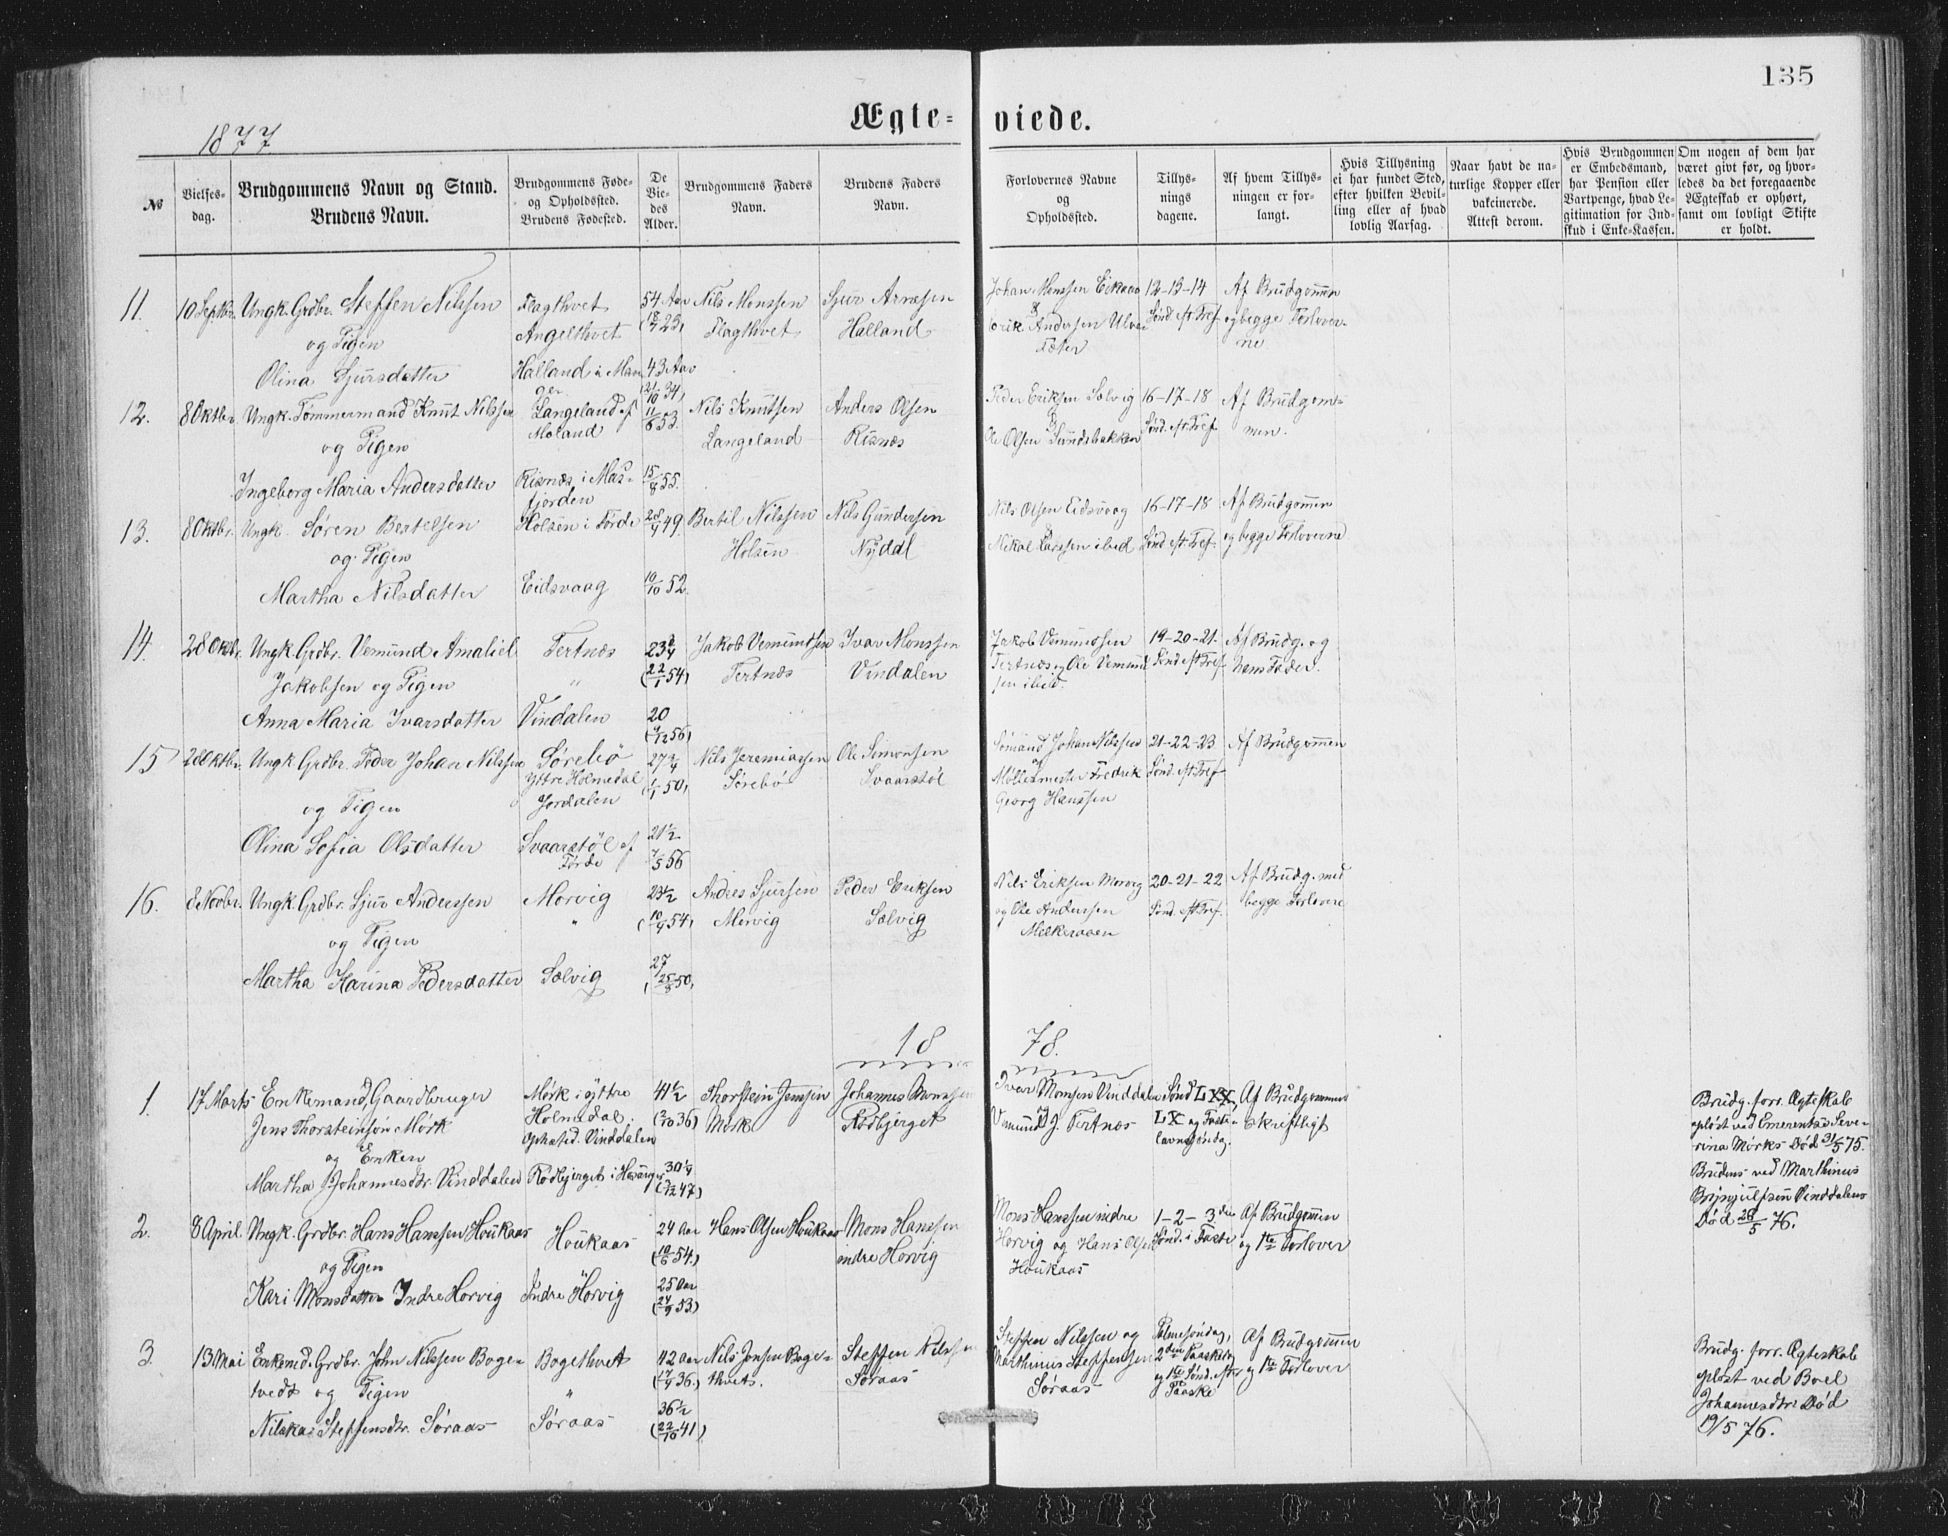 135
Ægte= viede.
1877
№
Vielses-
dag.
Brudgommens Navn og Stand.
Brudens Navn.
Brudgommens Føde-
og Opholdssted.
Brudens Fødested.
De
Vie-
des
Alder.
Brudgommens Faders
Navn.
Brudens Faders
Navn.
Forlovernes Navne
og
Opholdssted.
Tillys-
nings
dagene.
Af hvem Tillys-
ningen er for-
langt.
Hvis Tillysning
ei har fundet Sted,
efter hvilken Bevil-
ling eller af hvad
lovlig Aarsag.
Naar havt de na-
turlige Kopper eller
vakcinerede.
Attest derom.
Hvis Brudgommen
er Embedsmand,
har Pension eller
Vartpenge, hvad Le-
gitimation for Ind-
skud i Enke-Kassen.
Om nogen af dem har
været givt før, og hvor-
ledes da det foregaaende
Ægteskab er ophørt,
samt om lovligt Skifte
er holdt.
11. 10 Septbr. Ungk. Grdbr. Steffen Nilssen
og Pigen
Olina Sjursdatter
Flagthvet
Angelthvet
Halland i Man
ger
54 Aar
(18/7 23)
43 Aar
(21/10 34)
Nils Monssen
Flagthvet
Sjur Arnesen
Halland
Johan Monssen Eikaas
&
Erik Andersen Ulvar
12-13-14
Sønd. eft. Tref.
Af Brudgommen
og begge Forlover-
ne.
12. 8 Oktbr. Ungk. Tømmermand Knut Nilssen
og Pigen
Ingeborg Maria Andersdatter
Langeland af
Risnæs i Mas-
fjorden
11/6 53.
15/8 55.
Nils Knutsen
Langeland
Anders Olsen
Risnæs
Peder Eriksen Solvig
&
Ole Olsen Sundsbakken
16-17-18
Sønd. eft. Tref.
Af Brudgom-
men.
13. 8 Oktbr. Ungk. Søren Bertelsen
og Pigen
Martha Nilsdatter
Holsen i Førde
Eidsvaag
28/9 49.
10/10 52.
Bertil Nilssen
Holsen
Nils Gundersen
Nydal
Nils Olsen Eidsvaag
&
Nikol. Larssen ibid
16-17-18
Sønd. eft. Tref.
Af Brudgommen
og begge Forloverne
14. 28 Oktbr. Ungk. Grdbr. Vemund Amaliel
Jakobsen og Pigen
Anna Maria Ivarsdatter
Tertnæs
"
Vindalen
23 3/4
(22/1 54)
20
(9/12 56)
Jakob Vemundsen
Tertnæs
Ivar Monssen
Vindalen
Jakob Vemundsen
Tertnæs og Ole Vemund-
sen ibid.
19-20-21.
Sønd. eft. Tref.
Af Brudg. og
hans Fader.
15 28 Oktbr. Ungk. Grdbr. Peder Johan Nilssen
og Pigen
Olina Sofia Olsdatter
Sørebø
Yttre Holmedal
Jordalen
Svaarstøl af
Førde
27 3/4
(1/1 50)
21 1/2
7/5 56
Nils Jeremiassen
Sørebø
Ole Simonsen
Svaarstøl
Sømand Johan Nilssen
og
Møllermester Fredrik
Georg Hanssen
21-22-23
Sønd. eft. Tref
Af Brudgommen
16. 8 Novbr. Ungk. Grdbr. Sjur Anderssen
og Pigen
Martha Karina Pedersdatter
Morvig
"
Solvig
23 1/2
(10/4 54)
27
(25/8 50)
Andres Sjursen
Morvig
Peder Eriksen
Solvig
Nils Eriksen Morvig
og Ole Anderssen
20-21-22
Sønd. eft. Tref.
Af Brudg. med
begge Forlovere
1878.
1. 17 Marts Enkemand, Gaardbruger
Jens Thorsteinson Mørk
og Enken
Martha Johannesdtr. Vinddalen
Mørk i yttre
Holmedal;
Opholsst. Vinddalen
Rødbjerget i Hosanger
41 1/2
(2/10 36)
30 1/4
(5/12 47)
Thorstein Jensen
Mørk
Johannes Monssen
Rødbjerget
Ivar Monsen Vinddalen
og
Vemund J. Tertnæs
Sønd LXX,
LX og Faste-
lavnssøndag.
Af Brudgommen
skriftligt
Brudg. forr. Ægteskab
opløst ved Emerentse Seve-
rina Mørks Død 31/5 75.
Brudens ved Marthinus
Brynjulfsen Vinddalens
Død 28/5 76.
2. 8 April Ungk. Grdbr. Hans Hanssen Houkaas
og Pigen
Kari Monsdatter Indre Horvig
Houkaas
Indre Horvig
24 Aar
(10/6 54.)
25 Aar
(24/9 53)
Hans Olsen Houkaas
Mons Hanssen
indre Horvig
Mons Hanssen indre
Horvig og Hans Olsen
Houkaas
1-2-3die
Sønd. i Faste
Af Brudgommen
og 1ste Forlover
3. 13 Mai Enkemd. Grdbr. John Nilssen Boge-
tvedt og Pigen
Nilska Steffensdtr. Søraas
Bogethvet
"
Søraas
42 Aar
(17/4 36.)
36 1/2
(22/10 41)
Nils Jonsen Boge-
thvet.
Steffen Nilssen
Søraas
Steffen Nilssen og
Marthinus Steffensen
Søraas
Palmesøndag,
2den Paaskedag
og 1ste Sønd. efter
Paaske
Af Brudgommen
og 1ste Forlover
Brudg. forr. Ægteskab
opløst ved Boel
Johannesdtr. Død
19/5 76.